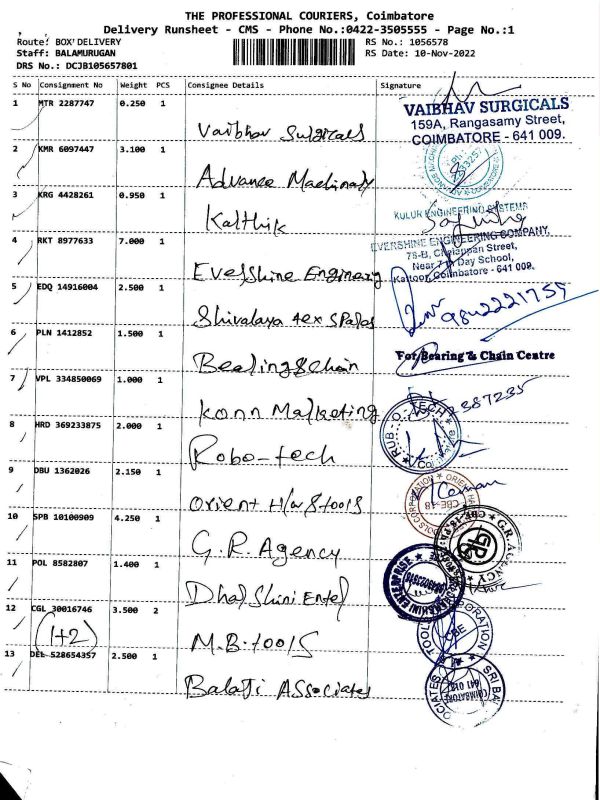 THE PROFESSIONAL COURIERS, Coimbatore
Delivery Runsheet - CMS - Phone No.:0422-3505555 - Page No.:1
Route: BOX DELIVERY
RS No.: 1056578
Staff: BALAMURUGAN
RS Date: 10-Nov-2022
DRS No.: DCJB105657801
S No Consignment No Weight PCS Consignee Details Signature
1 MTR 2287747 0.250 1
Vaibhav Surgicals
VAIBHAV SURGICALS
159A, Rangasamy Street,
COIMBATORE - 641 009.
2 KMR 6097447 3.100 1
Advance Machinary
3 KRG 4428261 0.950 1
Karthik
KULUR ENGINEERING SYSTEMS
4 RKT 8977633 7.000 1
Evershine Enginerry
EVERSHINE ENGINEERING COMPANY,
78-B, Chelappan Street,
Near 7th Day School,
Kattoor, Coimbatore - 641 009.
5 EDQ 14916004 2.500 1
Shivalaya tex Spares
9842221759
6 PLN 1412852 1.500 1
Bearing & Chain
For Bearing & Chain Centre
7 VPL 334850069 1.000 1
Konn Marketing
387235
8 HRD 369233875 2.000 1
Robo-tech
9 DBU 1362026 2.150 1
Orient H/w & tools
CBE-18
10 SPB 10100909 4.250 1
G.R. Agency
G.R. AGENCY
11 POL 8582807 1.400 1
Dharshini Enter
12 CGL 30016746 3.500 2
(1+2)
M.B. tools
CBE
13 DEL 528654357 2.500 1
Balaji Associates
SRI BA
COIMBATORE
641 012